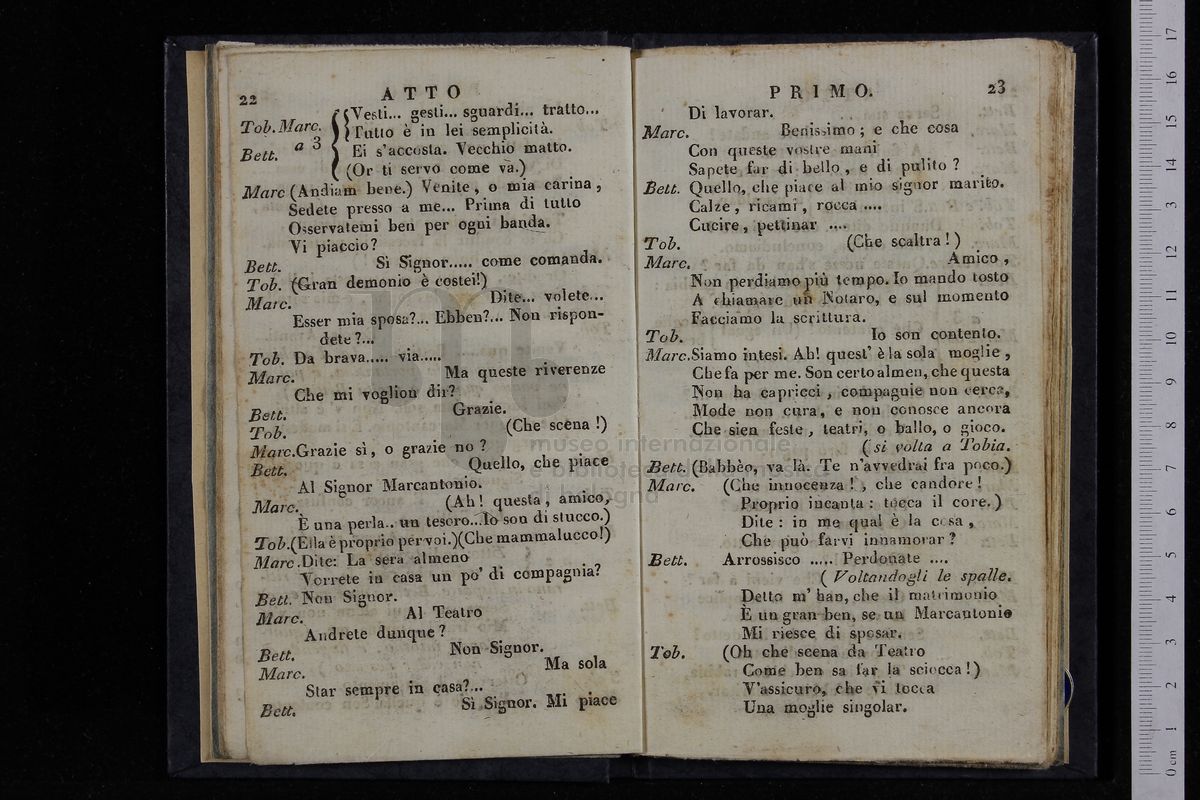 22
ATTO
Tob. Marc. Vesti... gesti... sguardi... tratto...
Tutto è in lei semplicità.
Bett. a 3 Ei s'accosta. Vecchio matto.
(Or ti servo come va.)
Marc (Andiam bene.) Venite, o mia carina,
Sedete presso a me... Prima di tutto
Osservatemi ben per ogni banda.
Vi piaccio?
Bett. Sì Signor..... come comanda.
Tob. (Gran demonio è costei!)
Marc. Dite... volete...
Esser mia sposa?... Ebben?... Non rispon-
dete?...
Tob. Da brava..... via.....
Marc. Ma queste riverenze
Che mi voglion dir?
Bett. Grazie.
Tob. (Che scena!)
Marc. Grazie sì, o grazie no?
Bett. Quello, che piace
Al Signor Marcantonio.
Marc. (Ah! questa, amico,
È una perla.. un tesoro... Io son di stucco.)
Tob. (Ella è proprio per voi.) (Che mammalucco!)
Marc. Dite: La sera almeno
Vorrete in casa un po' di compagnia?
Bett. Non Signor.
Marc. Al Teatro
Andrete dunque?
Bett. Non Signor.
Marc. Ma sola
Star sempre in casa?...
Bett. Sì Signor. Mi piace
PRIMO.
23
Di lavorar.
Marc. Benissimo; e che cosa
Con queste vostre mani
Sapete far di bello, e di pulito?
Bett. Quello, che piace al mio signor marito.
Calze, ricami, rocca ....
Cucire, pettinar ....
Tob. (Che scaltra!)
Marc. Amico,
Non perdiamo più tempo. Io mando tosto
A chiamare un Notaro, e sul momento
Facciamo la scrittura.
Tob. Io son contento.
Marc. Siamo intesi. Ah! quest' è la sola moglie,
Che fa per me. Son certo almen, che questa
Non ha capricci, compagnie non cerca,
Mode non cura, e non conosce ancora
Che sien feste, teatri, o ballo, o gioco.
(si volta a Tobia.
Bett. (Babbèo, va là. Te n'avvedrai fra poco.)
Marc. (Che innocenza!, che candore!
Proprio incanta: tocca il core.)
Dite: in me qual è la cosa,
Che può farvi innamorar?
Bett. Arrossisco ..... Perdonate ....
(Voltandogli le spalle.
Detto m' han, che il matrimonio
È un gran ben, se un Marcantonio
Mi riesce di sposar.
Tob. (Oh che scena da Teatro
Come ben sa far la sciocca!)
V'assicuro, che vi tocca
Una moglie singolar.
museo internazionale
biblioteca della musica
di bologna
0 cm 1 2 3 4 5 6 7 8 9 10 11 12 13 14 15 16 17